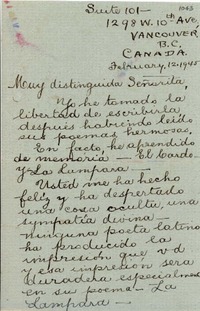 1045
Suite 101-
1298 W. 10th Ave,
VANCOUVER,
B.C.
CANADA.
February, 12, 1945
Muy distinguida Señorita,
Yo he tomado la
libertad de escribirla
después habiendo leído
sus poemas hermosos.
En facto, he aprendido
de memoria - El Cardo
y La Lampara -
Usted me ha hecho
feliz y ha despertado
una cosa oculta, una
sympatia divina -
ninguna poeta latina
ha producido la
impresion que vd
y esa impresion sera
duradera especialmente
en su poema - La
Lampara -